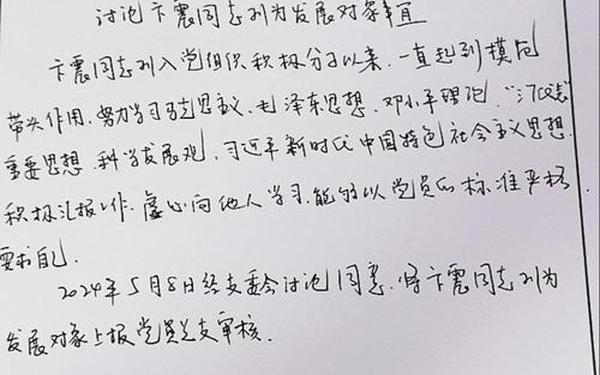 讨论卞震同志列为发展对象事宜
卞震同志列入党组织积极分子以来，一直起到模范
带头作用，努力学习马克思主义、毛泽东思想、邓小平理论、“三个代表”
重要思想、科学发展观、习近平新时代中国特色社会主义思想，
积极汇报工作，虚心向他人学习，能够以党员的标准严格
要求自己。
2024年5月8日经支委会讨论同意，将卞震同志列为
发展对象上报党员总支审核。